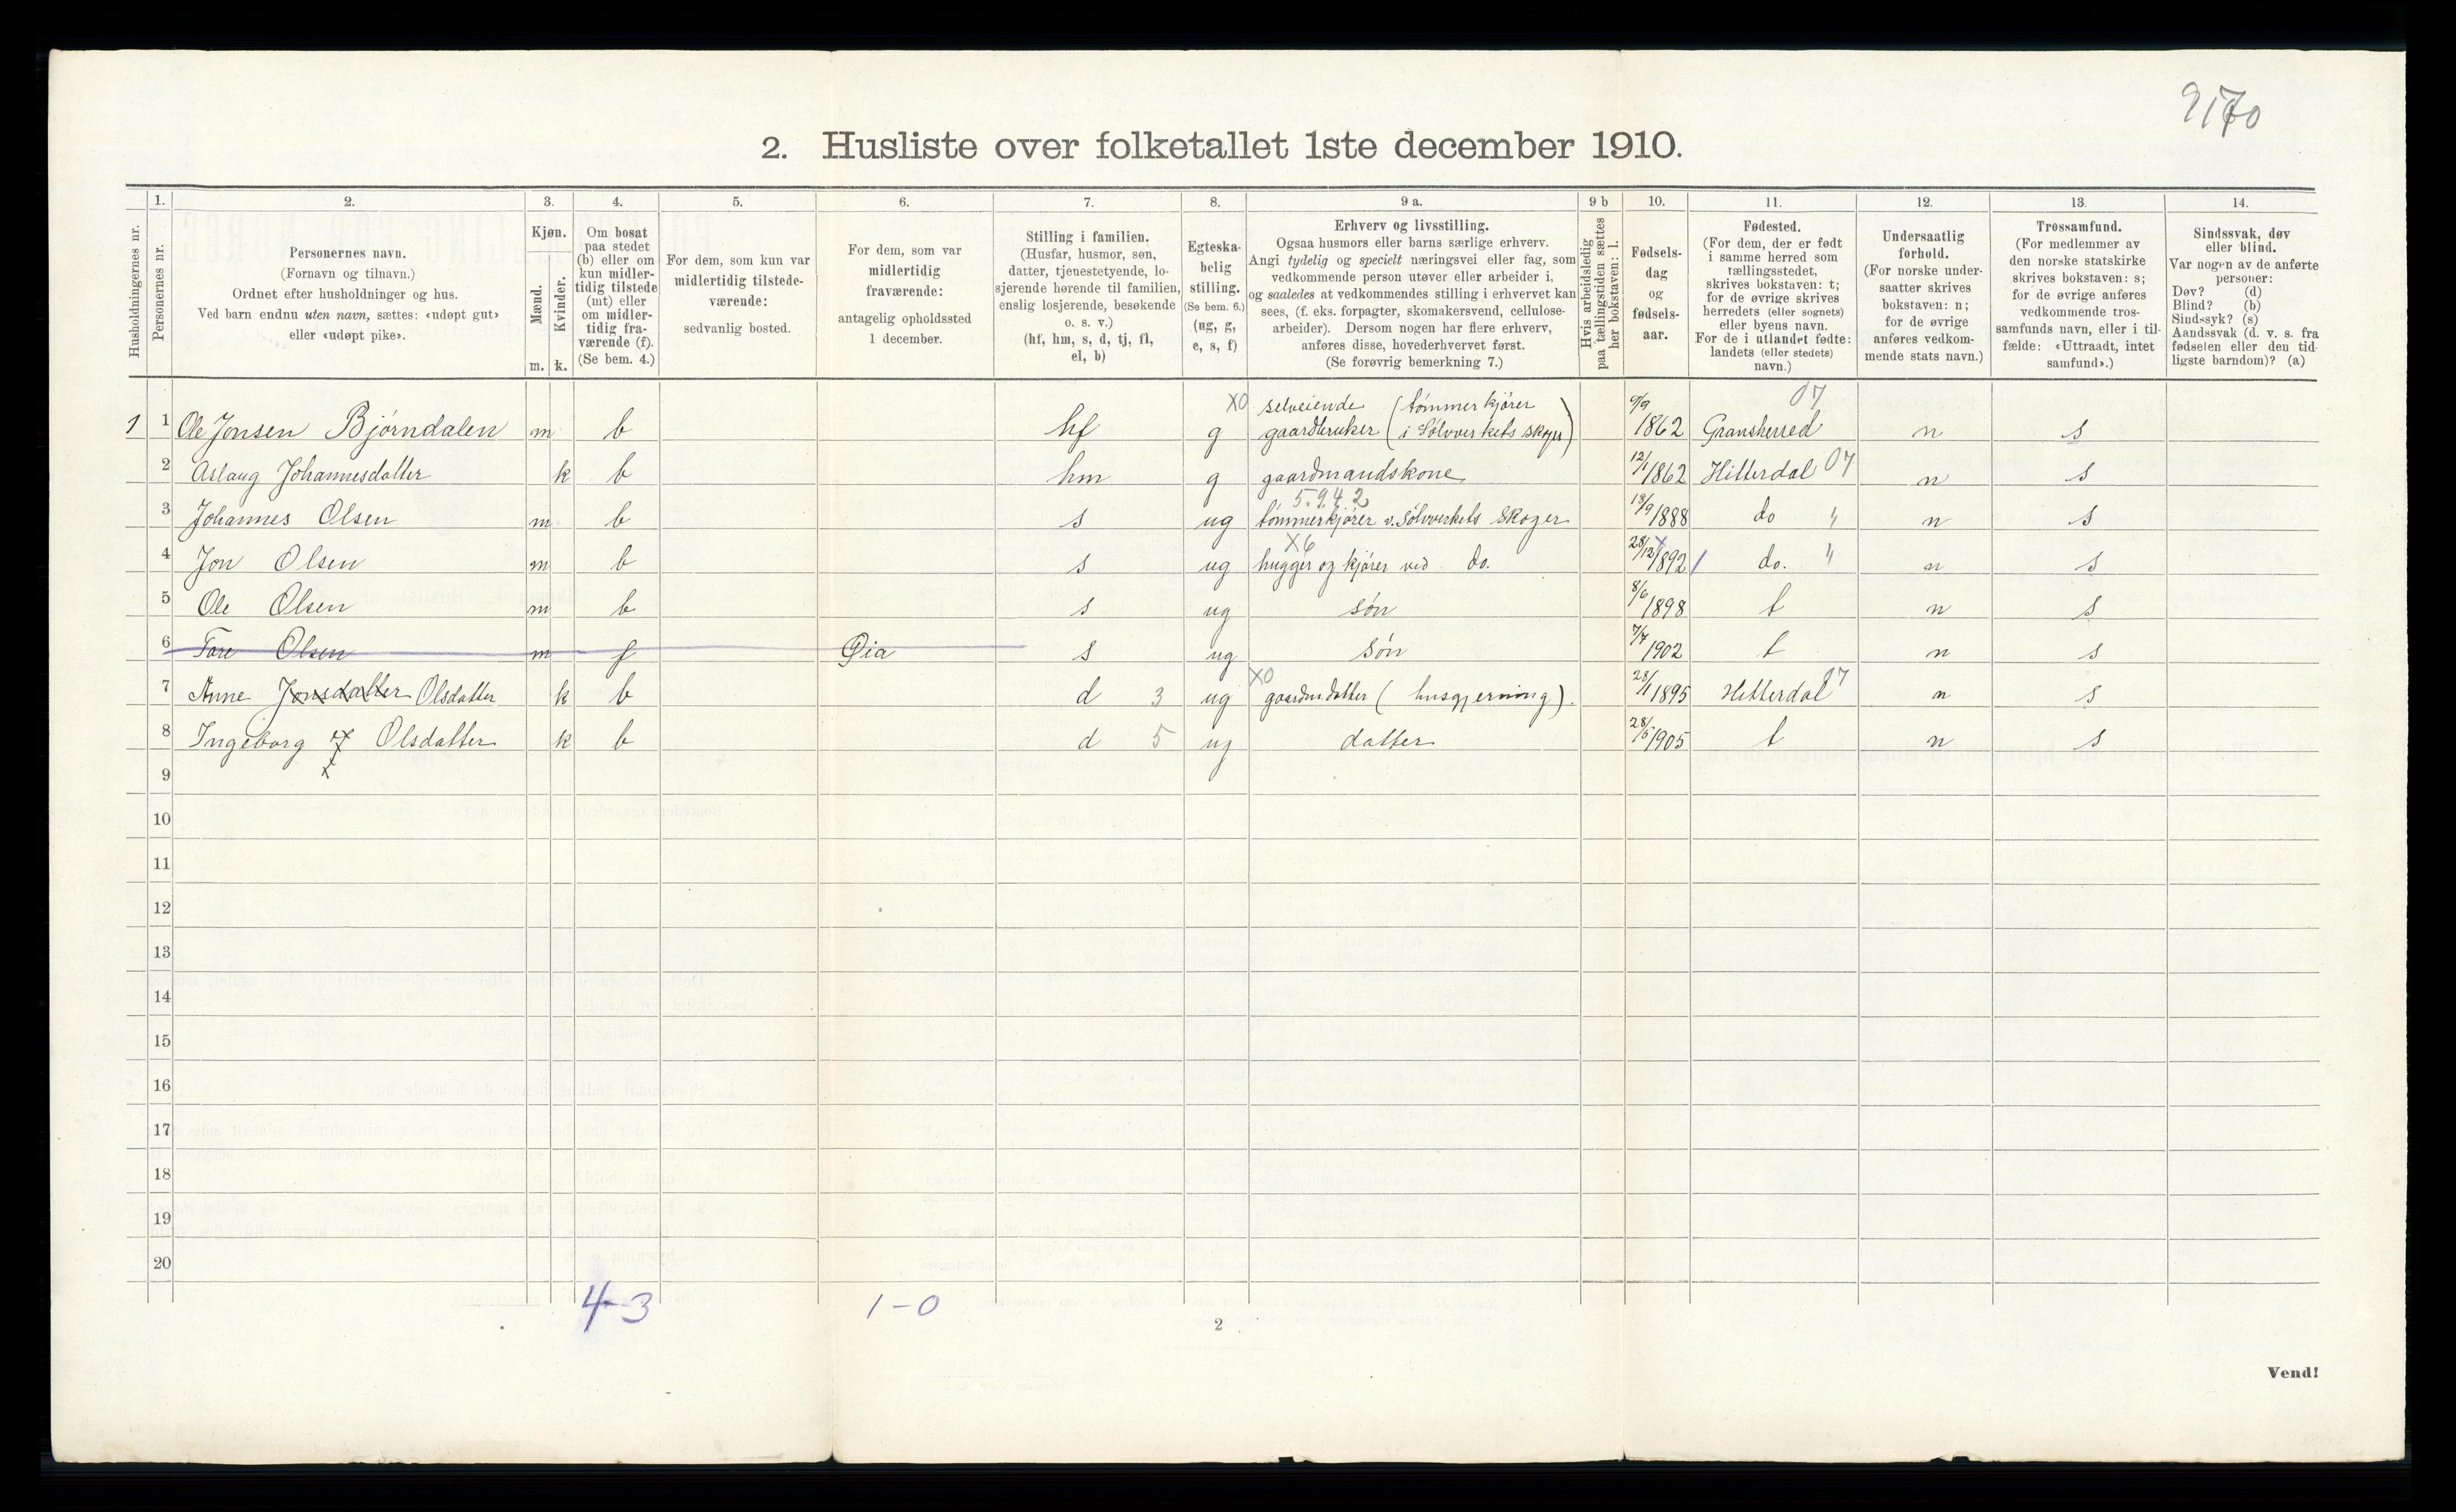 9170
2. Husliste over folketallet 1ste december 1910.
Husholdningernes nr.
1.
Personernes nr.
2.
Personernes navn.
(Fornavn og tilnavn.)
Ordnet efter husholdninger og hus.
Ved barn endnu uten navn, sættes: «udøpt gut»
eller «udøpt pike».
3.
Kjøn.
Mænd.
Kvinder.
m. k.
4.
Om bosat
paa stedet
(b) eller om
kun midler-
tidig tilstede
(mt) eller
om midler-
tidig fra-
værende (f).
(Se bem. 4.)
5.
For dem, som kun var
midlertidig tilstede-
værende:
sedvanlig bosted.
6.
For dem, som var
midlertidig
fraværende:
antagelig opholdssted
1 december.
7.
Stilling i familien.
(Husfar, husmor, søn,
datter, tjenestetyende, lo-
sjerende hørende til familien,
enslig losjerende, besøkende
o. s. v.)
(hf, hm, s, d, tj, fl,
el, b)
8.
Egteska-
belig
stilling.
(Se bem. 6.)
(ug, g,
e, s, f)
9 a.
Erhverv og livsstilling.
Ogsaa husmors eller barns særlige erhverv.
Angi tydelig og specielt næringsvei eller fag, som
vedkommende person utøver eller arbeider i,
og saaledes at vedkommendes stilling i erhvervet kan
sees, (f. eks. forpagter, skomakersvend, cellulose-
arbeider). Dersom nogen har flere erhverv,
anføres disse, hovederhvervet først.
(Se forøvrig bemerkning 7.)
9 b
Hvis arbeidsledig
paa tællingstiden sættes
her bokstaven: l.
10.
Fødsels-
dag
og
fødsels-
aar.
11.
Fødested.
(For dem, der er født
i samme herred som
tællingsstedet,
skrives bokstaven: t;
for de øvrige skrives
herredets (eller sognets)
eller byens navn.
For de i utlandet fødte:
landets (eller stedets)
navn.)
12.
Undersaatlig
forhold.
(For norske under-
saatter skrives
bokstaven: n;
for de øvrige
anføres vedkom-
mende stats navn.)
13.
Trossamfund.
(For medlemmer av
den norske statskirke
skrives bokstaven: s;
for de øvrige anføres
vedkommende tros-
samfunds navn, eller i til-
fælde: «Uttraadt, intet
samfund».)
14.
Sindssvak, døv
eller blind.
Var nogen av de anførte
personer:
Døv? (d)
Blind? (b)
Sindssyk? (s)
Aandssvak (d. v. s. fra
fødselen eller den tid-
ligste barndom)? (a)
X0 selveiende (tömmerkjörer 9/9 07
1 1 Ole Jonsen Björndalen m b hf g gaardbruker (i Sölvverkets skoger) 1862 Gransherred n s
2 Aslaug Johannesdatter k b hm g gaardmandskone 12/1 1862 Hitterdal 07 n s
5.942
3 Johannes Olsen m b s ug tömmerkjörer v. Sölvverkets skoger 18/9 1888 do " n s
X6
4 Jon Olsen m b s ug hugger og kjörer ved do. 28/12 1892 do. " n s
5 Ole Olsen m b s ug sön 8/6 1898 t n s
6 Tore Olsen m f Øia s ug sön 7/7 1902 t n s
X0
7 Anne Jonsdatter Olsdatter k b d 3 ug gaardmdatter (husgjerning). 28/1 1895 Hitterdal 07 n s
8 Ingeborg Olsdatter k b d 5 ug datter 28/5 1905 t n s
x
9
10
11
12
13
14
15
16
17
18
19
20
4-3 1-0
2
Vend!